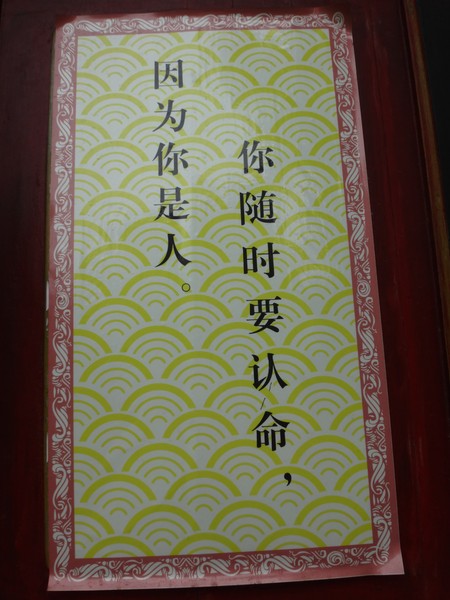 你随时要认命，
因为你是人。